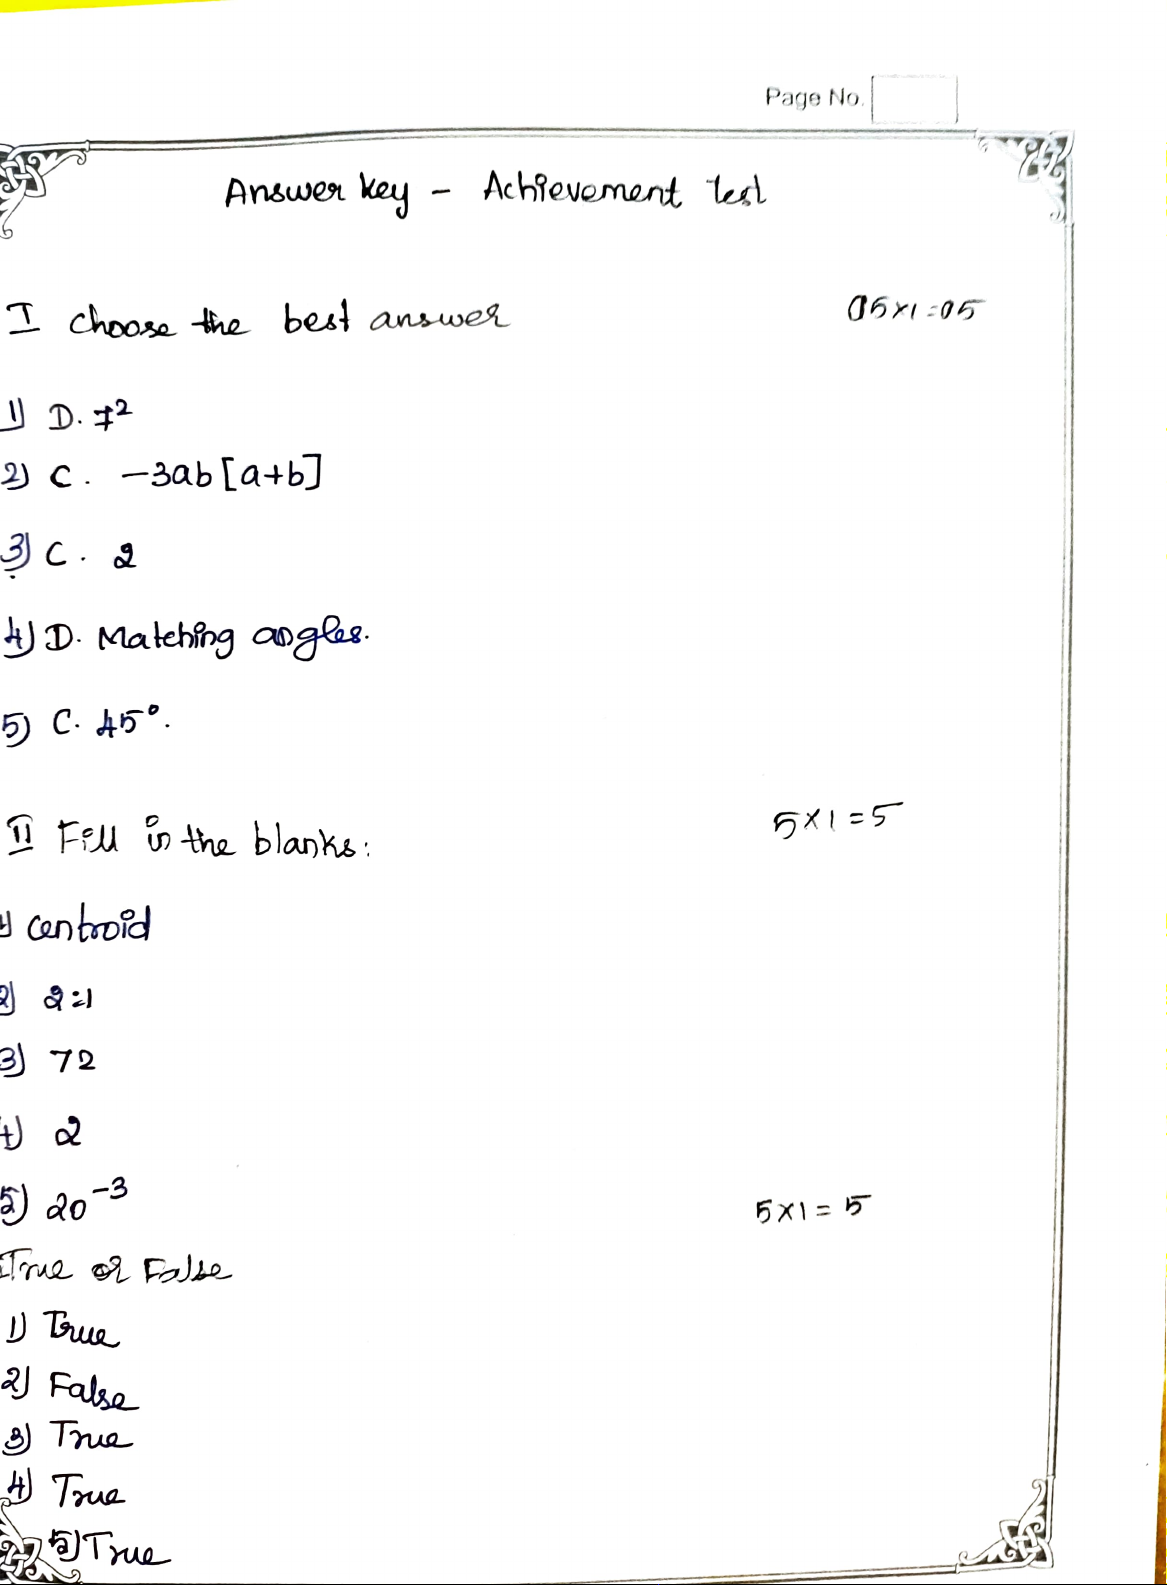 Page No.
Answer key - Achievement test
I choose the best answer 05x1=05
1) D. 7²
2) C. -3ab[a+b]
3) C. 2
4) D. Matching angles.
5) C. 45°.
II Fill in the blanks: 5x1=5
1) centroid
2) 2:1
3) 72
4) 2
5) 20⁻³ 5x1=5
True or False
1) True
2) False
3) True
4) True
5) True